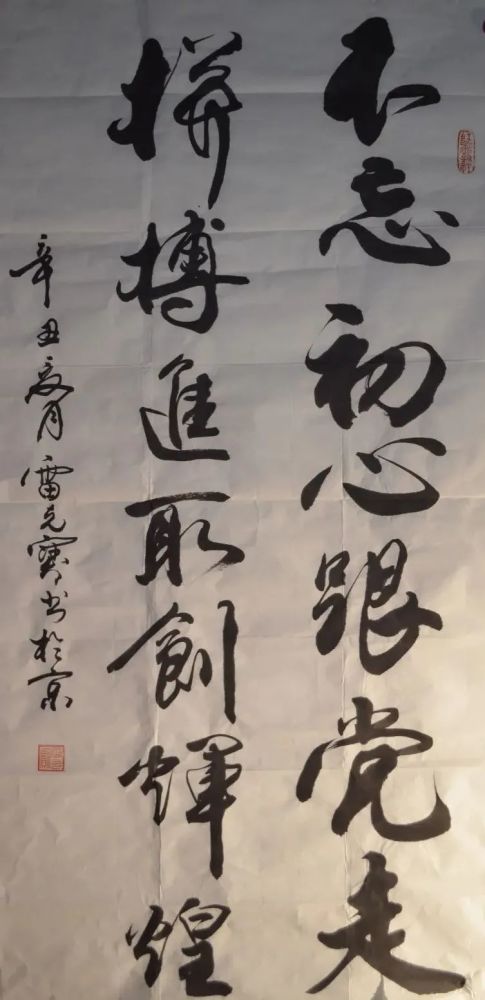 不忘初心跟党走
拼搏進取創輝煌
辛丑夏月雷克寶书於京